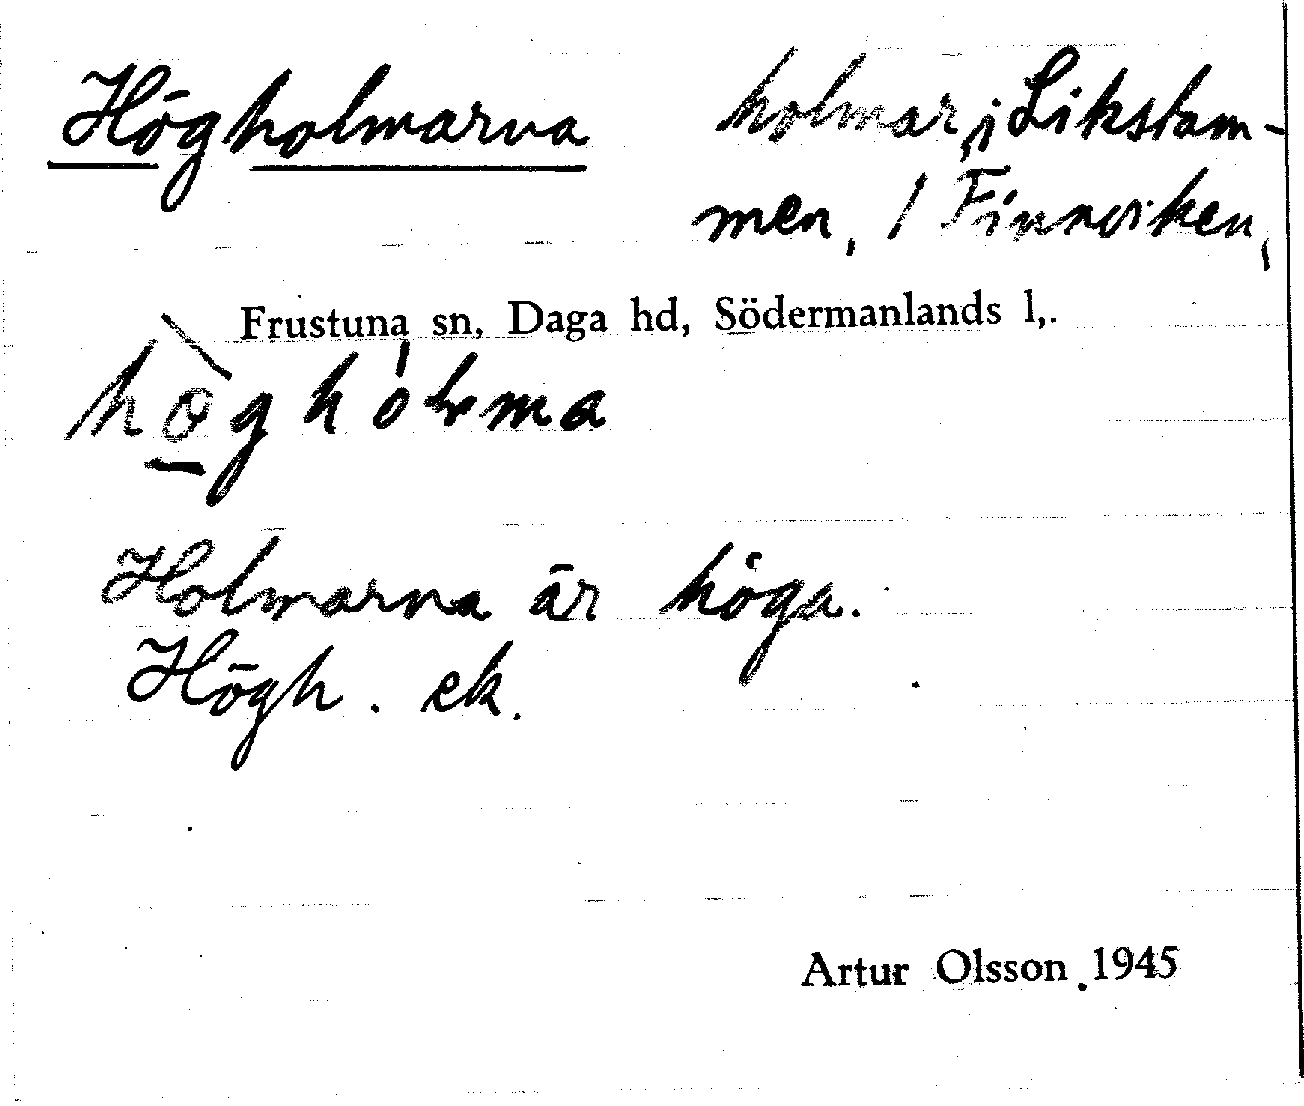 Högholmarna holmar, i Likstam-
men, i Finnviken,
Frustuna sn, Daga hd, Södermanlands l,.
Holmarna är höga.
Högh. ek.
Artur Olsson 1945